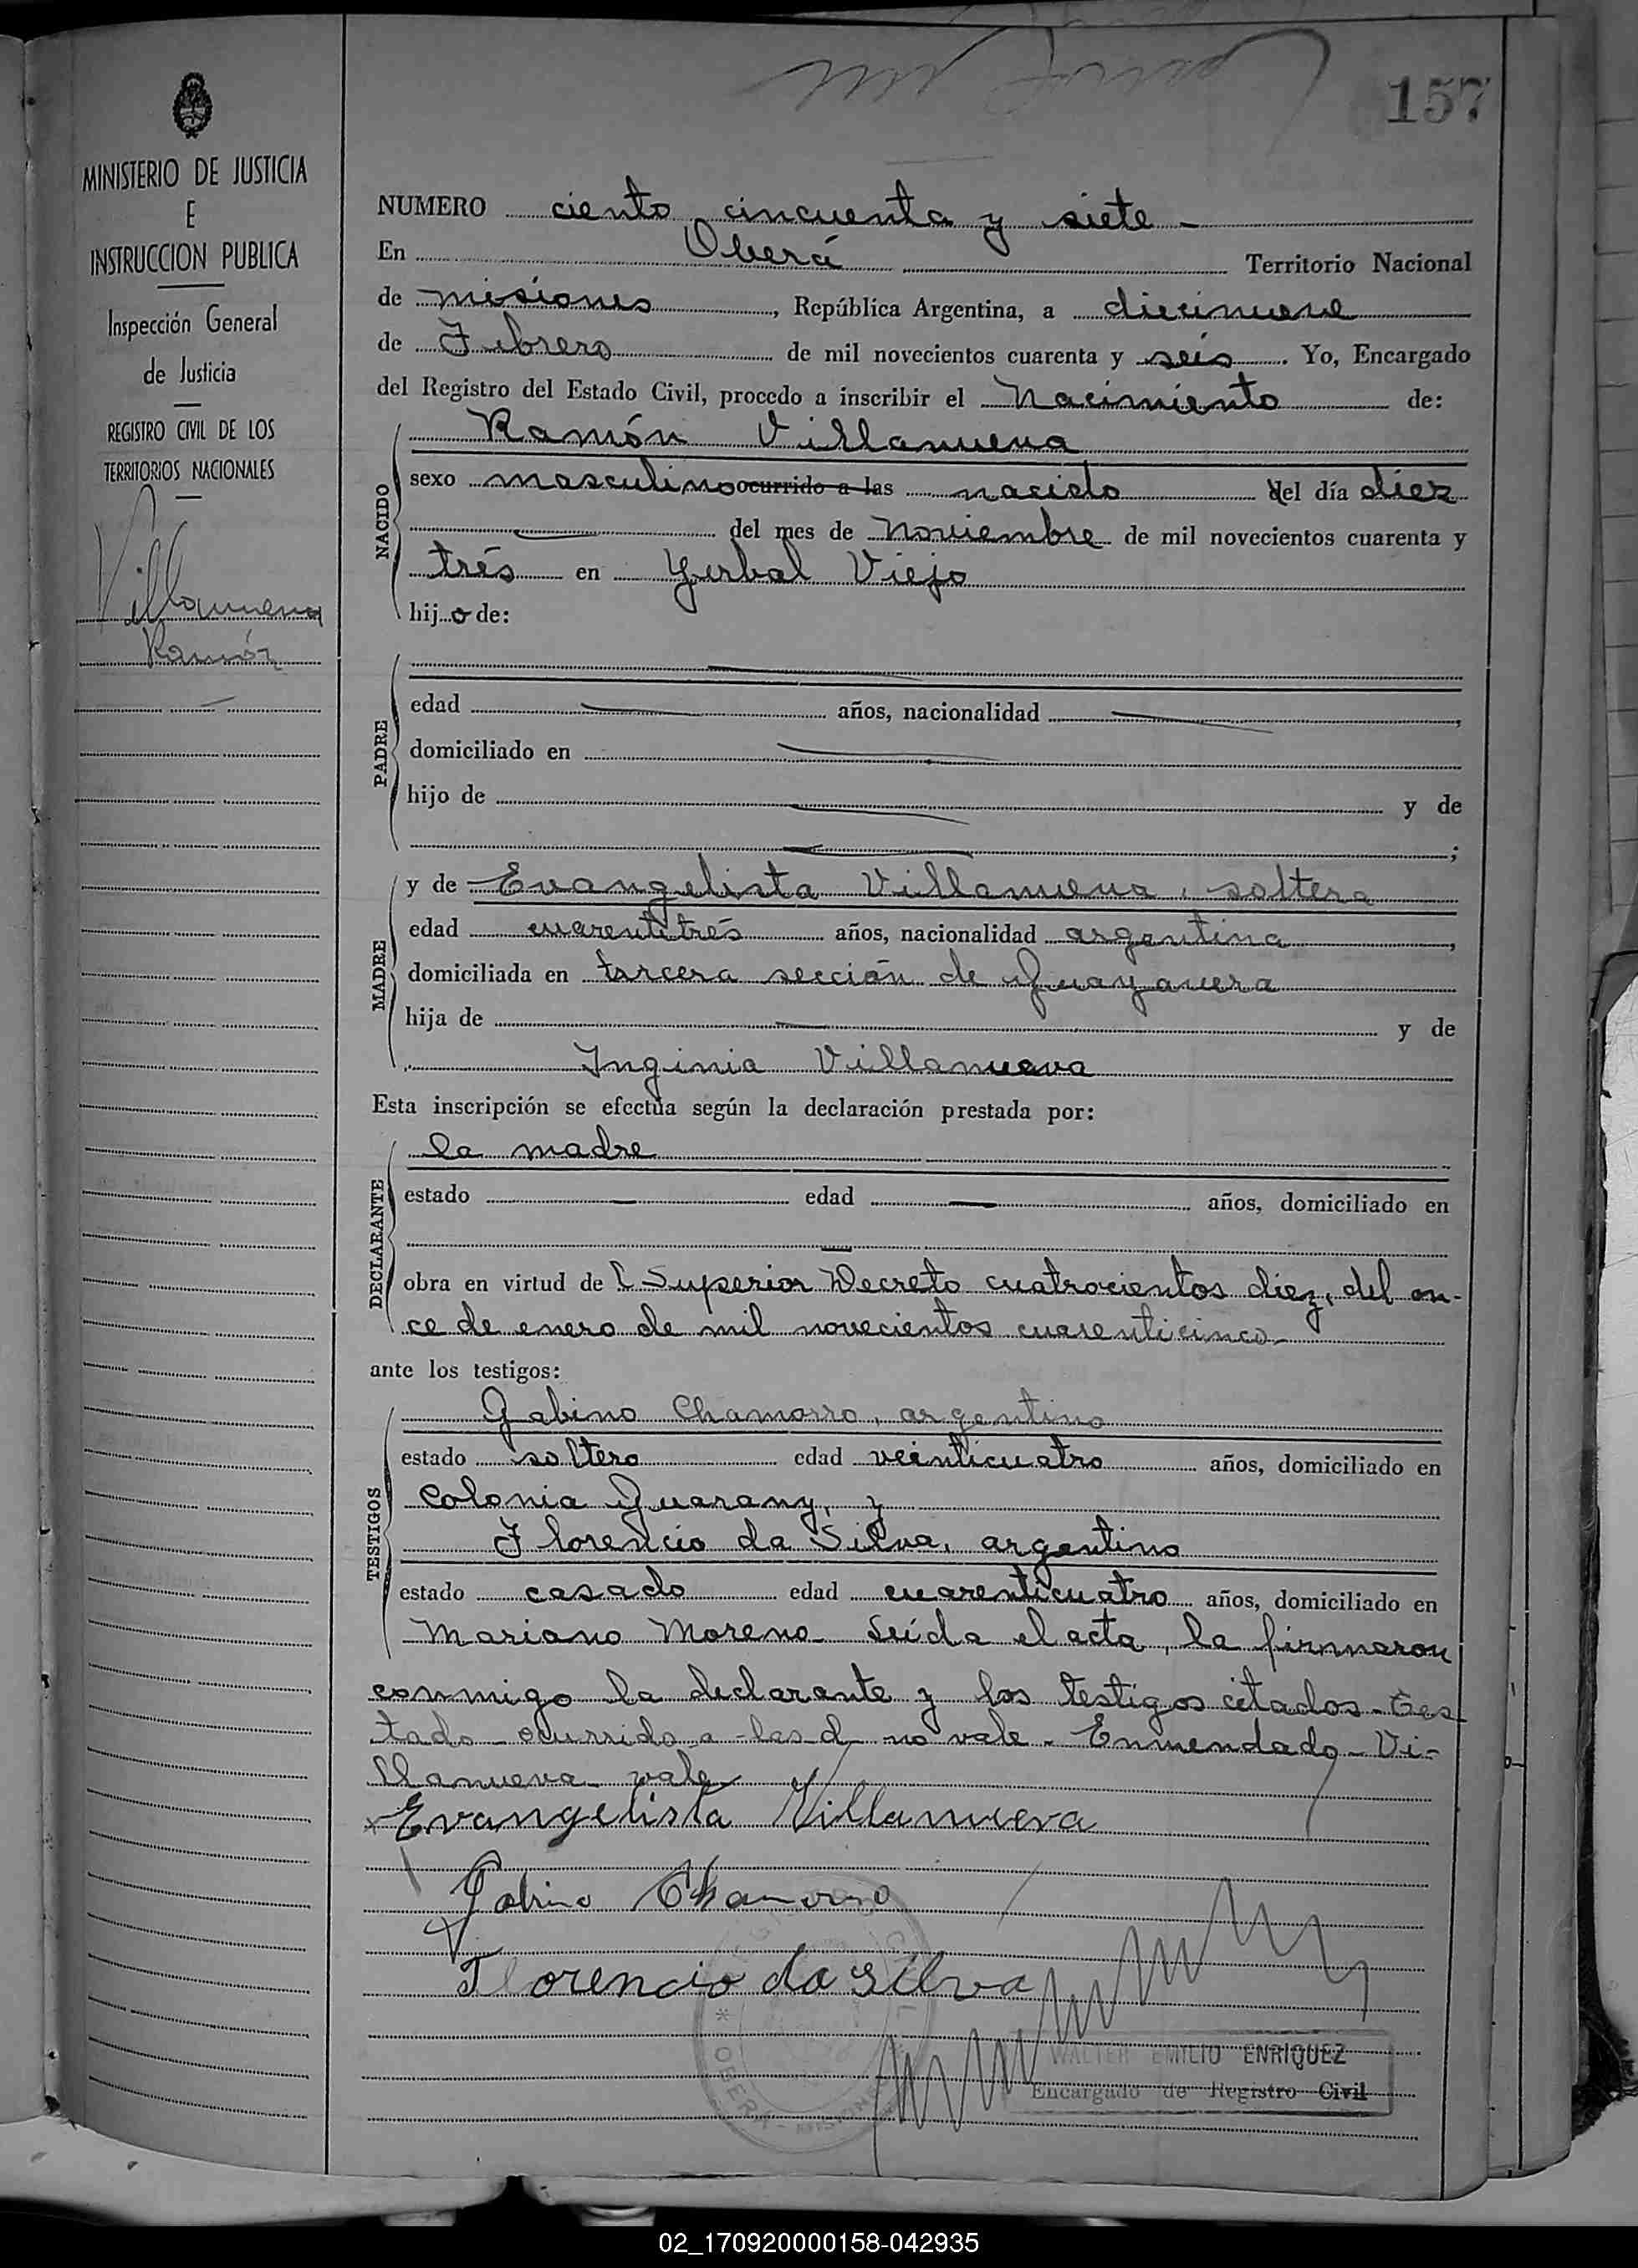 157
MINISTERIO DE JUSTICIA
E
INSTRUCCION PUBLICA
Inspección General
de Justicia
REGISTRO CIVIL DE LOS
TERRITORIOS NACIONALES
Villanueva
Ramón
NUMERO ciento cincuenta y siete -
En Oberá Territorio Nacional
de misiones, República Argentina, a diecinueve
de Febrero de mil novecientos cuarenta y seis. Yo, Encargado
del Registro del Estado Civil, procedo a inscribir el Nacimiento de:
Ramón Villanueva
NACIDO
sexo masculino ocurrido a las nacido del día diez
del mes de Noviembre de mil novecientos cuarenta y
trés en Yerbal Viejo
hijo de:
PADRE
edad años, nacionalidad ,
domiciliado en
hijo de y de
;
MADRE
y de Evangelista Villanueva, soltera
edad cuarentitrés años, nacionalidad argentina,
domiciliada en tercera sección de Guayavera
hija de y de
Inginia Villanueva
Esta inscripción se efectúa según la declaración prestada por:
DECLARANTE
la madre
estado edad años, domiciliado en
obra en virtud del Superior Decreto cuatrocientos diez, del on-
ce de enero de mil novecientos cuarenticinco
ante los testigos:
TESTIGOS
Gabino Chamorro, argentino
estado soltero edad veinticuatro años, domiciliado en
Colonia Guarany, y
Florencio da Silva, argentino
estado casado edad cuarenticuatro años, domiciliado en
Mariano Moreno. Leída el acta, la firmaron
conmigo la declarante y los testigos citados - Tes-
tado - ocurrido a las d no vale - Enmendado - Vi-
llanueva vale
x Evangelista Villanueva
Gabino Chamorro
Florencio da Silva
WALTER EMILIO ENRIQUEZ
Encargado de Registro Civil
02_170920000158-042935